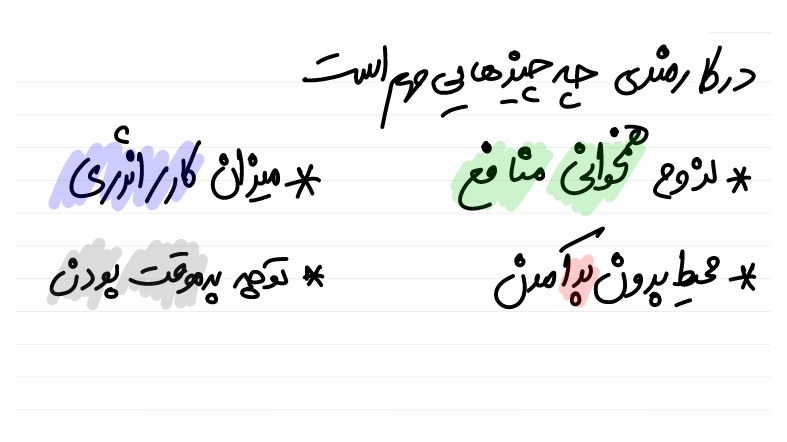 در کارمندی چه چیزهایی مهم است
* لزوم همخوانی منافع * میزان کار، انرژی
* محیط بدون برآمدن * توجه به موقت بودن